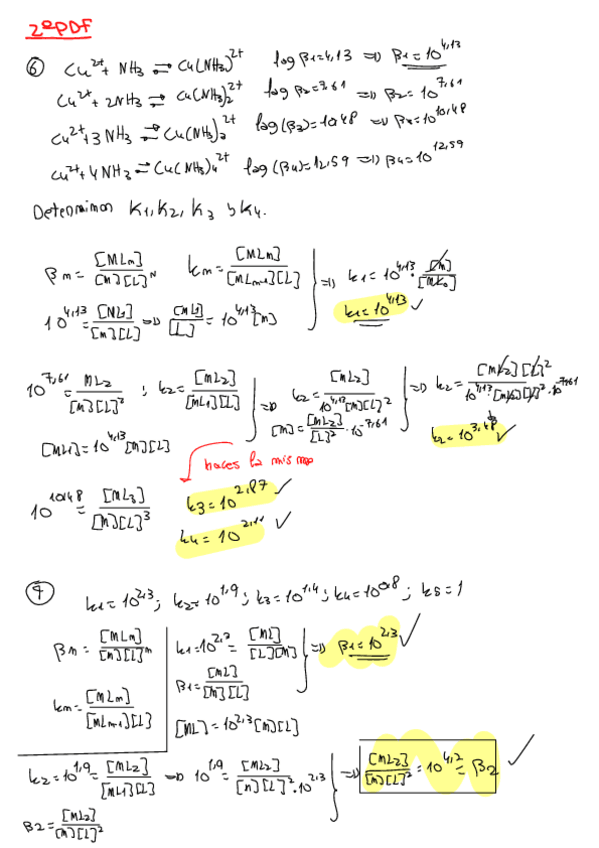 2ºPDF
⑥ Cu²⁺ + NH₃ ⇌ Cu(NH₃)²⁺ log β₁=4,13 ⇒ β₁=10^4,13
Cu²⁺ + 2NH₃ ⇌ Cu(NH₃)₂²⁺ log β₂=7,61 ⇒ β₂=10^7,61
Cu²⁺+3NH₃ ⇌ Cu(NH₃)₃²⁺ log(β₃)=10,48 ⇒ β₃=10^10,48
Cu²⁺+4NH₃ ⇌ Cu(NH₃)₄²⁺ log(β₄)=12,59 ⇒ β₄=10^12,59
Determinar K₁, K₂, K₃ y K₄.
βm = [MLm]/[M][L]^N km = [MLm]/[MLm-1][L] ⇒ k₁=10^4,13 · [M]/[ML₀]
10^4,13 = [ML₁]/[M][L] ⇒ [ML₁]/[L] = 10^4,13 [M] k₁=10^4,13 ✓
10^7,61 = ML₂/[M][L]² ; k₂ = [ML₂]/[ML₁][L] ⇒ k₂ = [ML₂]/10^4,13 [M][L]² ⇒ k₂ = [ML₂][L]²/10^4,13 · [ML₂][L]² · 10^-7,61
[ML₁] = 10^4,13 [M][L] [M] = [ML₂]/[L]² · 10^-7,61 k₂ = 10^3,48 ✓
haces lo mismo
10^10,48 = [ML₃]/[M][L]³ k₃ = 10^2,87 ✓
k₄ = 10^2,11 ✓
⑦ k₁=10^2,3 ; k₂=10^1,9 ; k₃=10^1,4 ; k₄=10^0,8 ; k₅=1
βm = [MLm]/[M][L]^m k₁=10^2,3 = [ML]/[L][M] ⇒ β₁=10^2,3 ✓
β₁ = [ML]/[M][L]
km = [MLm]/[MLm-1][L] [ML] = 10^2,3 [M][L]
k₂=10^1,9 = [ML₂]/[ML₁][L] ⇒ 10^1,9 = [ML₂]/[M][L]² · 10^2,3 ⇒ [ML₂]/[M][L]² = 10^4,2 = β₂ ✓
β₂ = [ML₂]/[M][L]²